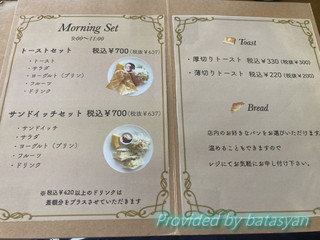 Morning Set
9:00～11:00
トーストセット 税込￥700(税抜￥637)
・トースト
・サラダ
・ヨーグルト(プリン)
・フルーツ
・ドリンク
サンドイッチセット 税込￥700(税抜￥637)
・サンドイッチ
・サラダ
・ヨーグルト(プリン)
・フルーツ
・ドリンク
※税込￥420以上のドリンクは
差額分をプラスさせていただきます
Toast
・厚切りトースト 税込￥330(税抜￥300)
・薄切りトースト 税込￥220(税抜￥200)
Bread
店内のお好きなパンをお選びいただけます。
温めることもできますので
レジにてお気軽にお申し付け下さい。
Provided by batasyan